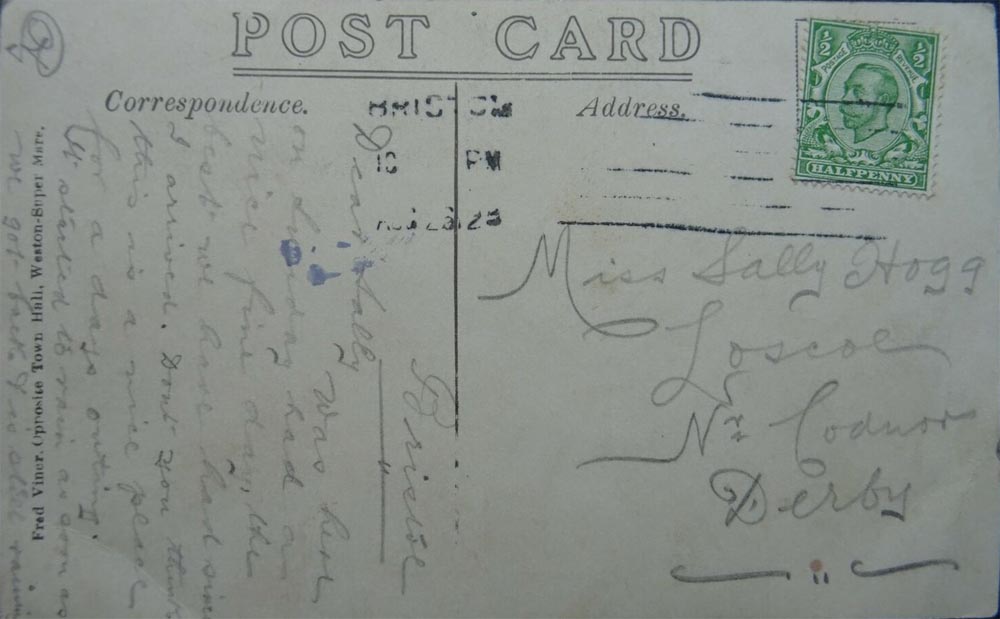 POST CARD
Correspondence.
Address.
BRISTOL
PM
½ ½
POSTAGE REVENUE
HALFPENNY
Miss Sally Hogg
Loscoe
Nr Codnor
Derby
Bristol
Dear Sally
Was here
on Sunday had a
nice fine day, the
best we have had since
I arrived. Dont you think
this is a nice place
for a days outing.
It started to rain as soon as
we got back & is still raining
Fred Viner, Opposite Town Hall, Weston-Super Mare.